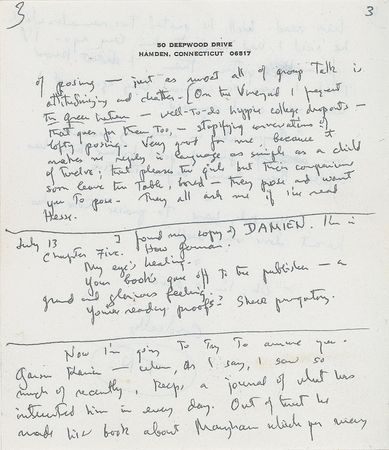 3
3
50 DEEPWOOD DRIVE
HAMDEN, CONNECTICUT 06517
of posing — just as most all of group talk is
attitudinizing and chatter. [On the Vineyard I frequent
the green — well-to-do hippie college dropouts —
that goes for them too, — stupefying conversations of
lofty posing. Very good for me because it
makes me reply in language as simple as a child
of twelve; that pleases the girls but their companions
soon leave the table, bored — they pose and want
you to pose. They all ask me if I've read
Hesse.
July 13 I found my copy of DAMIEN. I'm in
Chapter Five. How German.
My eye's healing.
Your book's gone off to the publisher — a
grand and glorious feeling.
You're reading proofs? Sheer purgatory.
Now I'm going to try to amuse you.
Garson Kanin — whom, as I say, I saw so
much of recently, keeps a journal of what has
interested him in every day. Out of that he
made his book about Maugham which